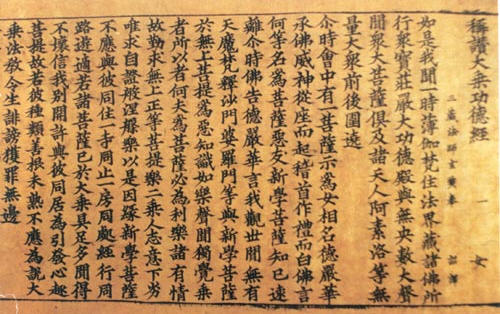 稱讚大乗功德經 一 女
三藏法師玄奘奉 詔譯
如是我聞一時薄伽梵住法界藏諸佛所
行衆寶莊嚴大功德殿與無央數大聲
聞衆大菩薩俱及諸天人阿素洛等無
量大衆前後圍遶
尒時會中有一菩薩示爲女相名德嚴華
承佛威神從座而起稽首作禮而白佛言
何等名爲菩薩惡友新學菩薩知已速
離尒時佛告德嚴華言我觀世間無有
天魔梵釋沙門婆羅門等與新學菩薩
於無上菩提爲惡知識如樂聲聞獨覺乗
者所以者何夫爲菩薩必爲利樂諸有情
故勤求無上正等菩提樂二乗人志意下劣
唯求自證般涅槃樂以是因緣新學菩薩
不應與彼同住一寺同止一房同處經行同
路遊適若諸菩薩已於大乗具足多聞得
不壞信我別開許與彼同居爲引發心趣
菩提故若彼種類善根未熟不應爲說大
乗法教令生誹謗獲罪無邊